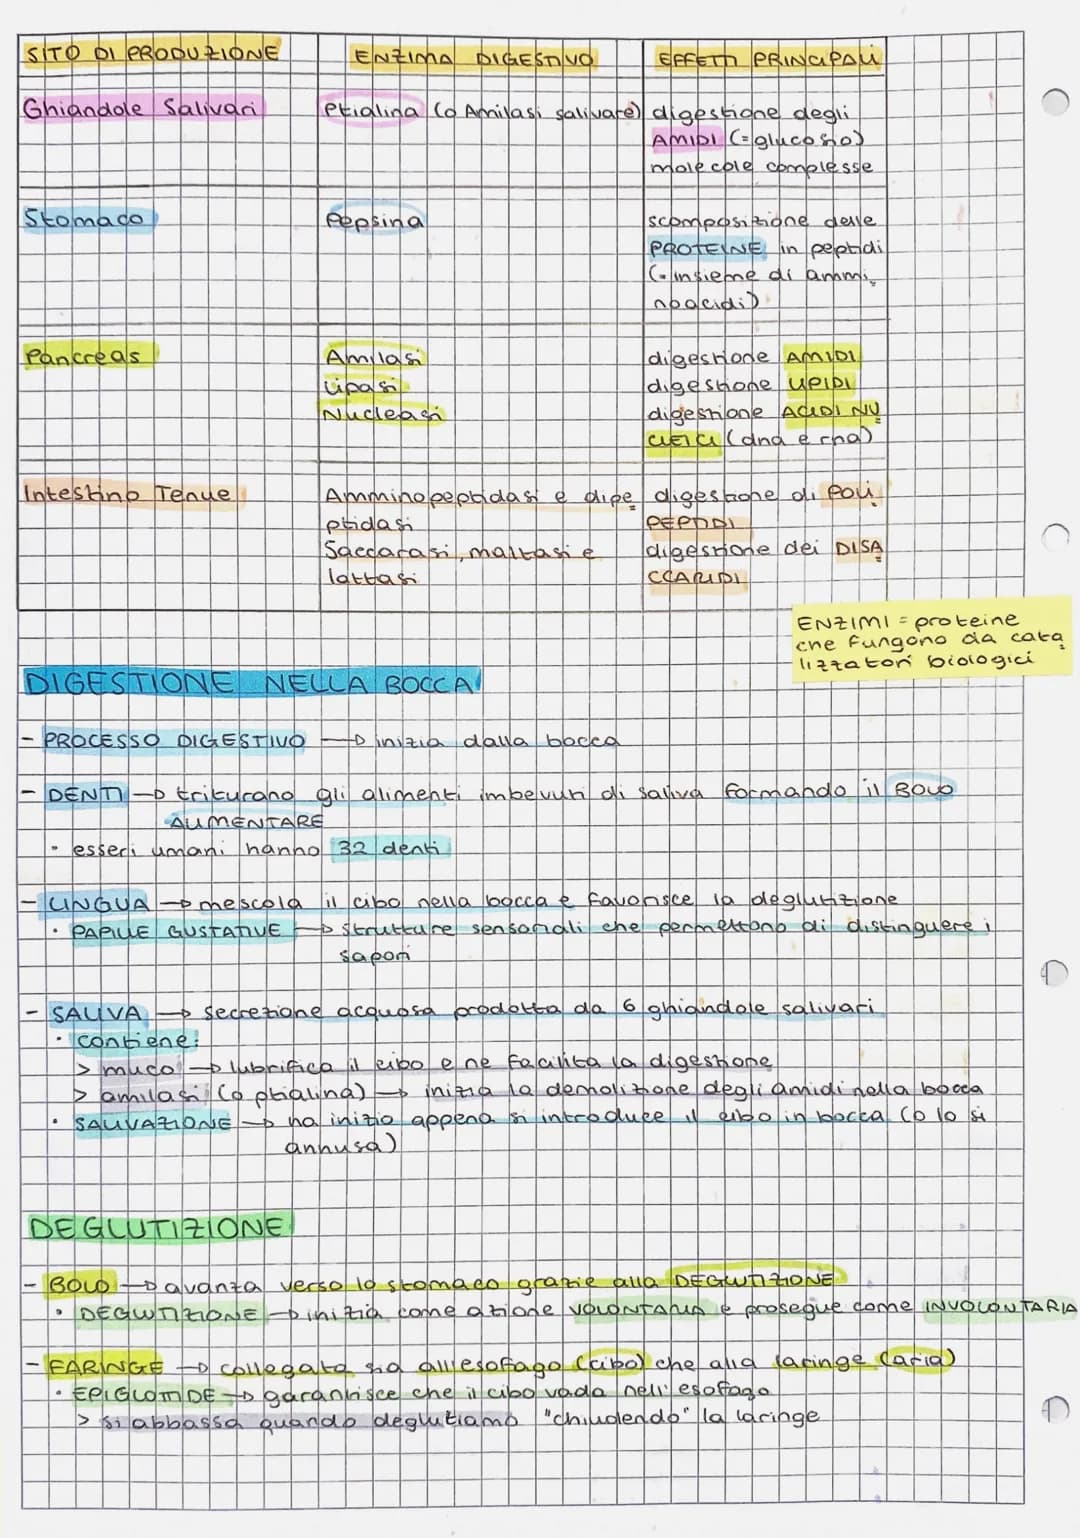 SITO DI PRODUZIONE ENZIMA DIGESTIVO EFFETTI PRINCIPALI
Ghiandole Salivari ptialina (o Amilasi salivare) digestione degli
AMIDI (=glucosio)
molecole complesse
Stomaco Pepsina scomposizione delle
PROTEINE in peptidi
(=insieme di ammi
noacidi)
Pancreas Amilasi digestione AMIDI
Lipasi digestione LIPIDI
Nucleasi digestione ACIDI NU
CLEICI (dna e rna)
Intestino Tenue Amminopeptidasi e dipe digestione di POLI
ptidasi PEPTIDI
Saccarasi, maltasi e digestione dei DISA
lattasi CCARIDI
ENZIMI = proteine
che fungono da cata
lizzatori biologici
DIGESTIONE NELLA BOCCA
- PROCESSO DIGESTIVO → inizia dalla bocca
- DENTI → triturano gli alimenti imbevuti di saliva formando il BOLO
AUMENTARE
• esseri umani hanno 32 denti
- LINGUA → mescola il cibo nella bocca e favorisce la deglutizione
• PAPILLE GUSTATIVE → strutture sensoriali che permettono di distinguere i
sapori
- SALIVA → secrezione acquosa prodotta da 6 ghiandole salivari
• contiene:
> muco → lubrifica il cibo e ne facilita la digestione
> amilasi (o ptialina) → inizia la demolizione degli amidi nella bocca
• SALIVAZIONE → ha inizio appena si introduce il cibo in bocca (o lo si
annusa)
DEGLUTIZIONE
- BOLO → avanza verso lo stomaco grazie alla DEGLUTIZIONE
• DEGLUTIZIONE → inizia come azione VOLONTARIA e prosegue come INVOLONTARIA
- FARINGE → collegata sia all'esofago (cibo) che alla laringe (aria)
• EPIGLOTTIDE → garantisce che il cibo vada nell'esofago
> si abbassa quando deglutiamo "chiudendo" la laringe